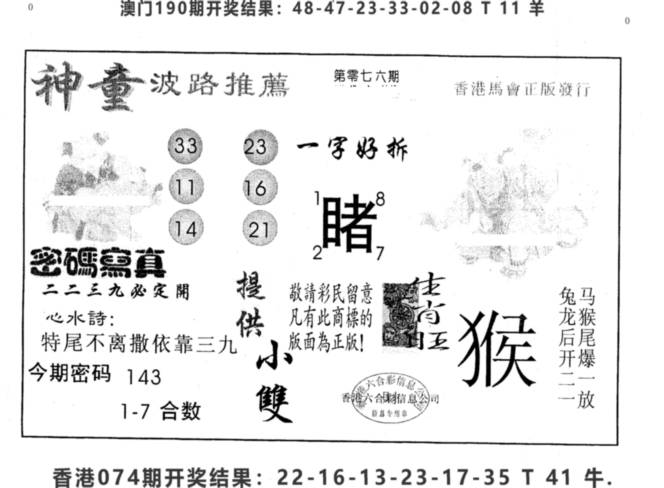 澳门190期开奖结果：48-47-23-33-02-08 T 11 羊
0
0
神童波路推薦
第零七六期
香港馬會正版發行
33 23
11 16
14 21
一字好拆
1 8
睹
2 7
密碼寫真
二二三九必定開
心水詩：
特尾不离撒依靠三九
今期密码 143
1-7 合数
提供
小雙
敬請彩民留意
凡有此商標的
版面為正版!
生肖旺
猴
马猴尾爆一放
兔龙后开二一
香港六合彩信息公司
香港074期开奖结果：22-16-13-23-17-35 T 41 牛.